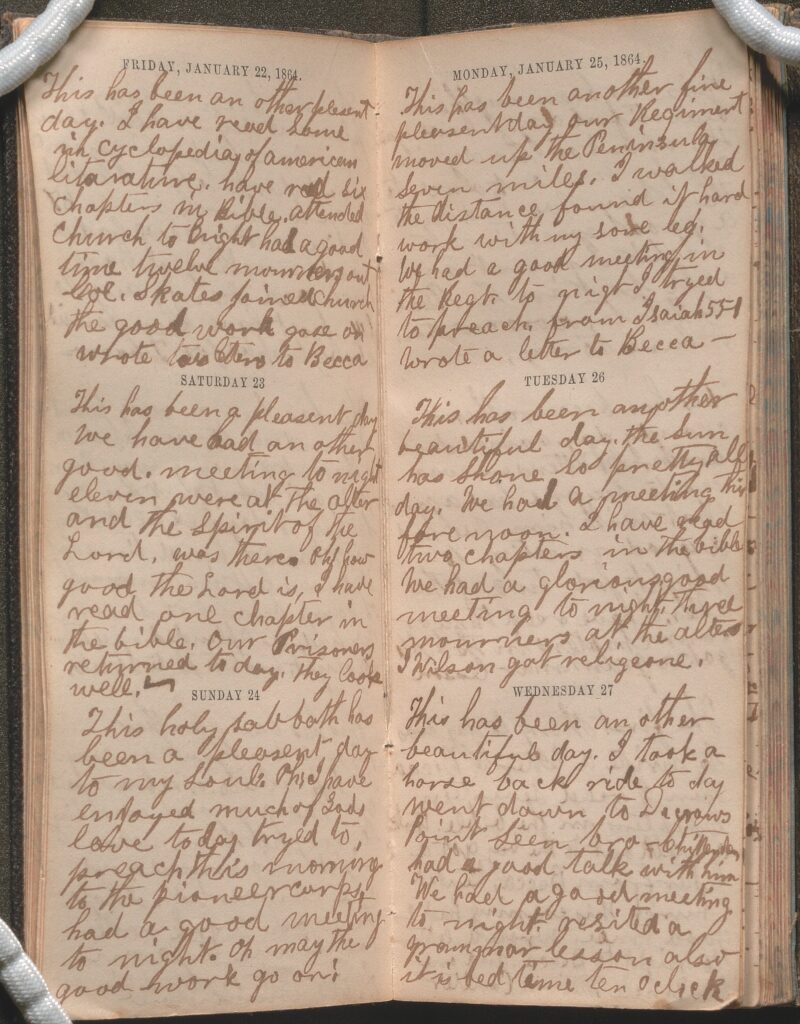 FRIDAY, JANUARY 22, 1864.
This has been an other plesent
day. I have read some
in cyclopedia of american
litarature. have red six
Chapters in Bible. attended
Church to night had a good
time twelve mourners out
Skates joined Church
the good work gose on
wrote two letters to Becca
SATURDAY 23
This has been a pleasent day
we have had an other
good. meeting to night
eleven were at the alter
and the Spirit of the
Lord. was there. Oh how
good the Lord is, I have
read one chapter in
the bible. Our Prisoners
returned to day. they look
well.
SUNDAY 24
This holy sabbath has
been a pleasent day
to my Soul. Oh I have
enjoyed much of Gods
love today tryed to,
preach this morning
to the pioneer corps,
had a good meeting
to night. Oh may the
good work go on!
MONDAY, JANUARY 25, 1864.
This has been another fine
pleasent day our Regiment
moved up the Peninsula
Seven miles. I walked
the distance found it hard
work with my sore leg.
We had a good meeting in
the Regt. to night I tryed
to preach from Isaiah 55-1
wrote a letter to Becca —
TUESDAY 26
This has been another
beautiful day. the Sun
has Shone So pretty all
day. We had a meeting this
fore noon. I have read
two chapters in the bible
We had a glorious good
meeting to night. three
mourners at the alter
J Wilson got religeone.
WEDNESDAY 27
This has been an other
beautiful day. I took a
horse back ride to day
went down to Decrows
Point Seen bro - Chittenden
had a good talk with him
We had a good meeting
to night. resited a
grammar lesson also
it is bed teme ten oclick